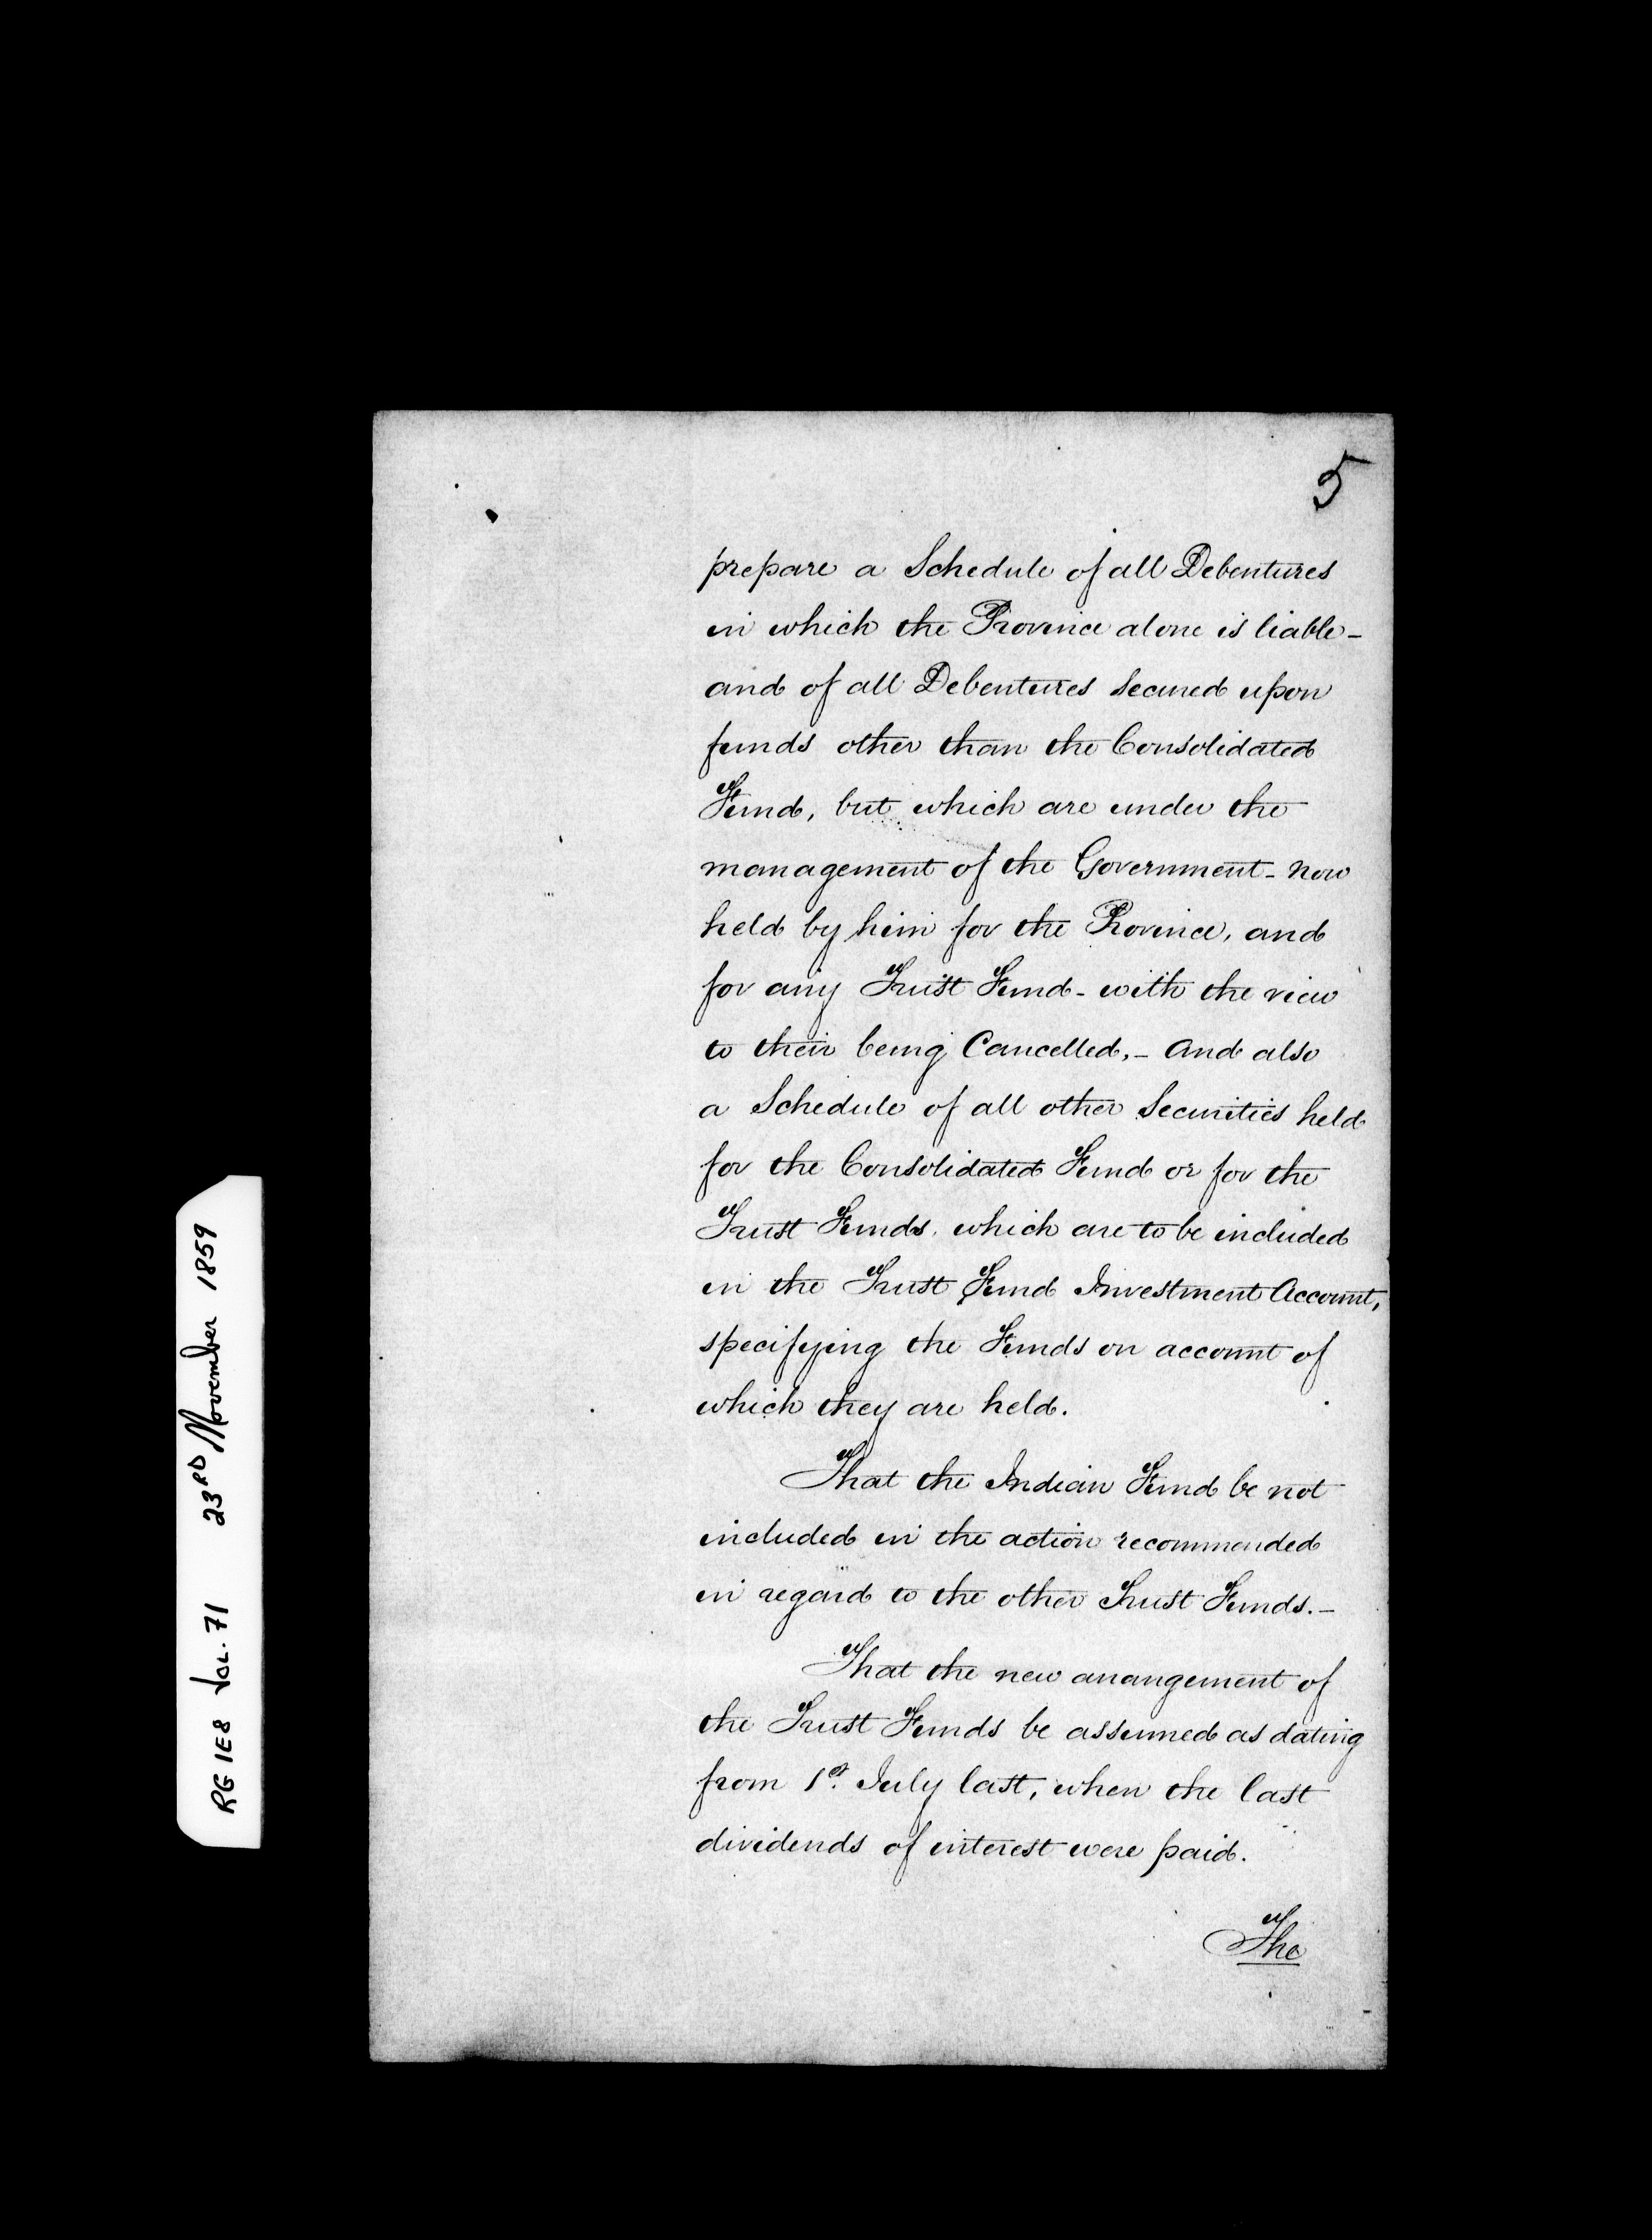 5
prepare a Schedule of all Debentures
in which the Province alone is liable -
and of all Debentures secured upon
funds other than the Consolidated
Fund, but which are under the
management of the Government - now
held by him for the Province, and
for any Trust Fund - with the view
to their being Cancelled, - And also
a Schedule of all other Securities held
for the Consolidated Fund or for the
Trust Funds, which are to be included
in the Trust Fund Investment Account,
specifying the Funds on account of
which they are held.
That the Indian Fund be not
included in the action recommended
in regard to the other Trust Funds. -
That the new arrangement of
the Trust Funds be assumed as dating
from 1st July last, when the last
dividends of interest were paid.
The
RG 1E8 Vol. 71 23RD November 1859